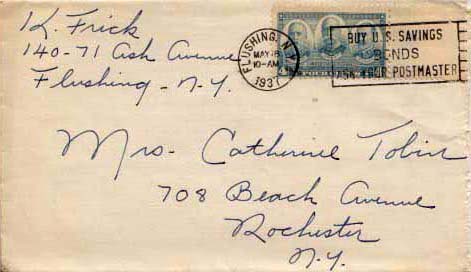 K. Frick
140-71 Ash Avenue
Flushing - N.Y.
FLUSHING, N.Y.
MAY
10-AM
1937
BUY U.S. SAVINGS
BONDS
ASK YOUR POSTMASTER
Mrs. Catherine Tobin
708 Beach Avenue
Rochester
N.Y.